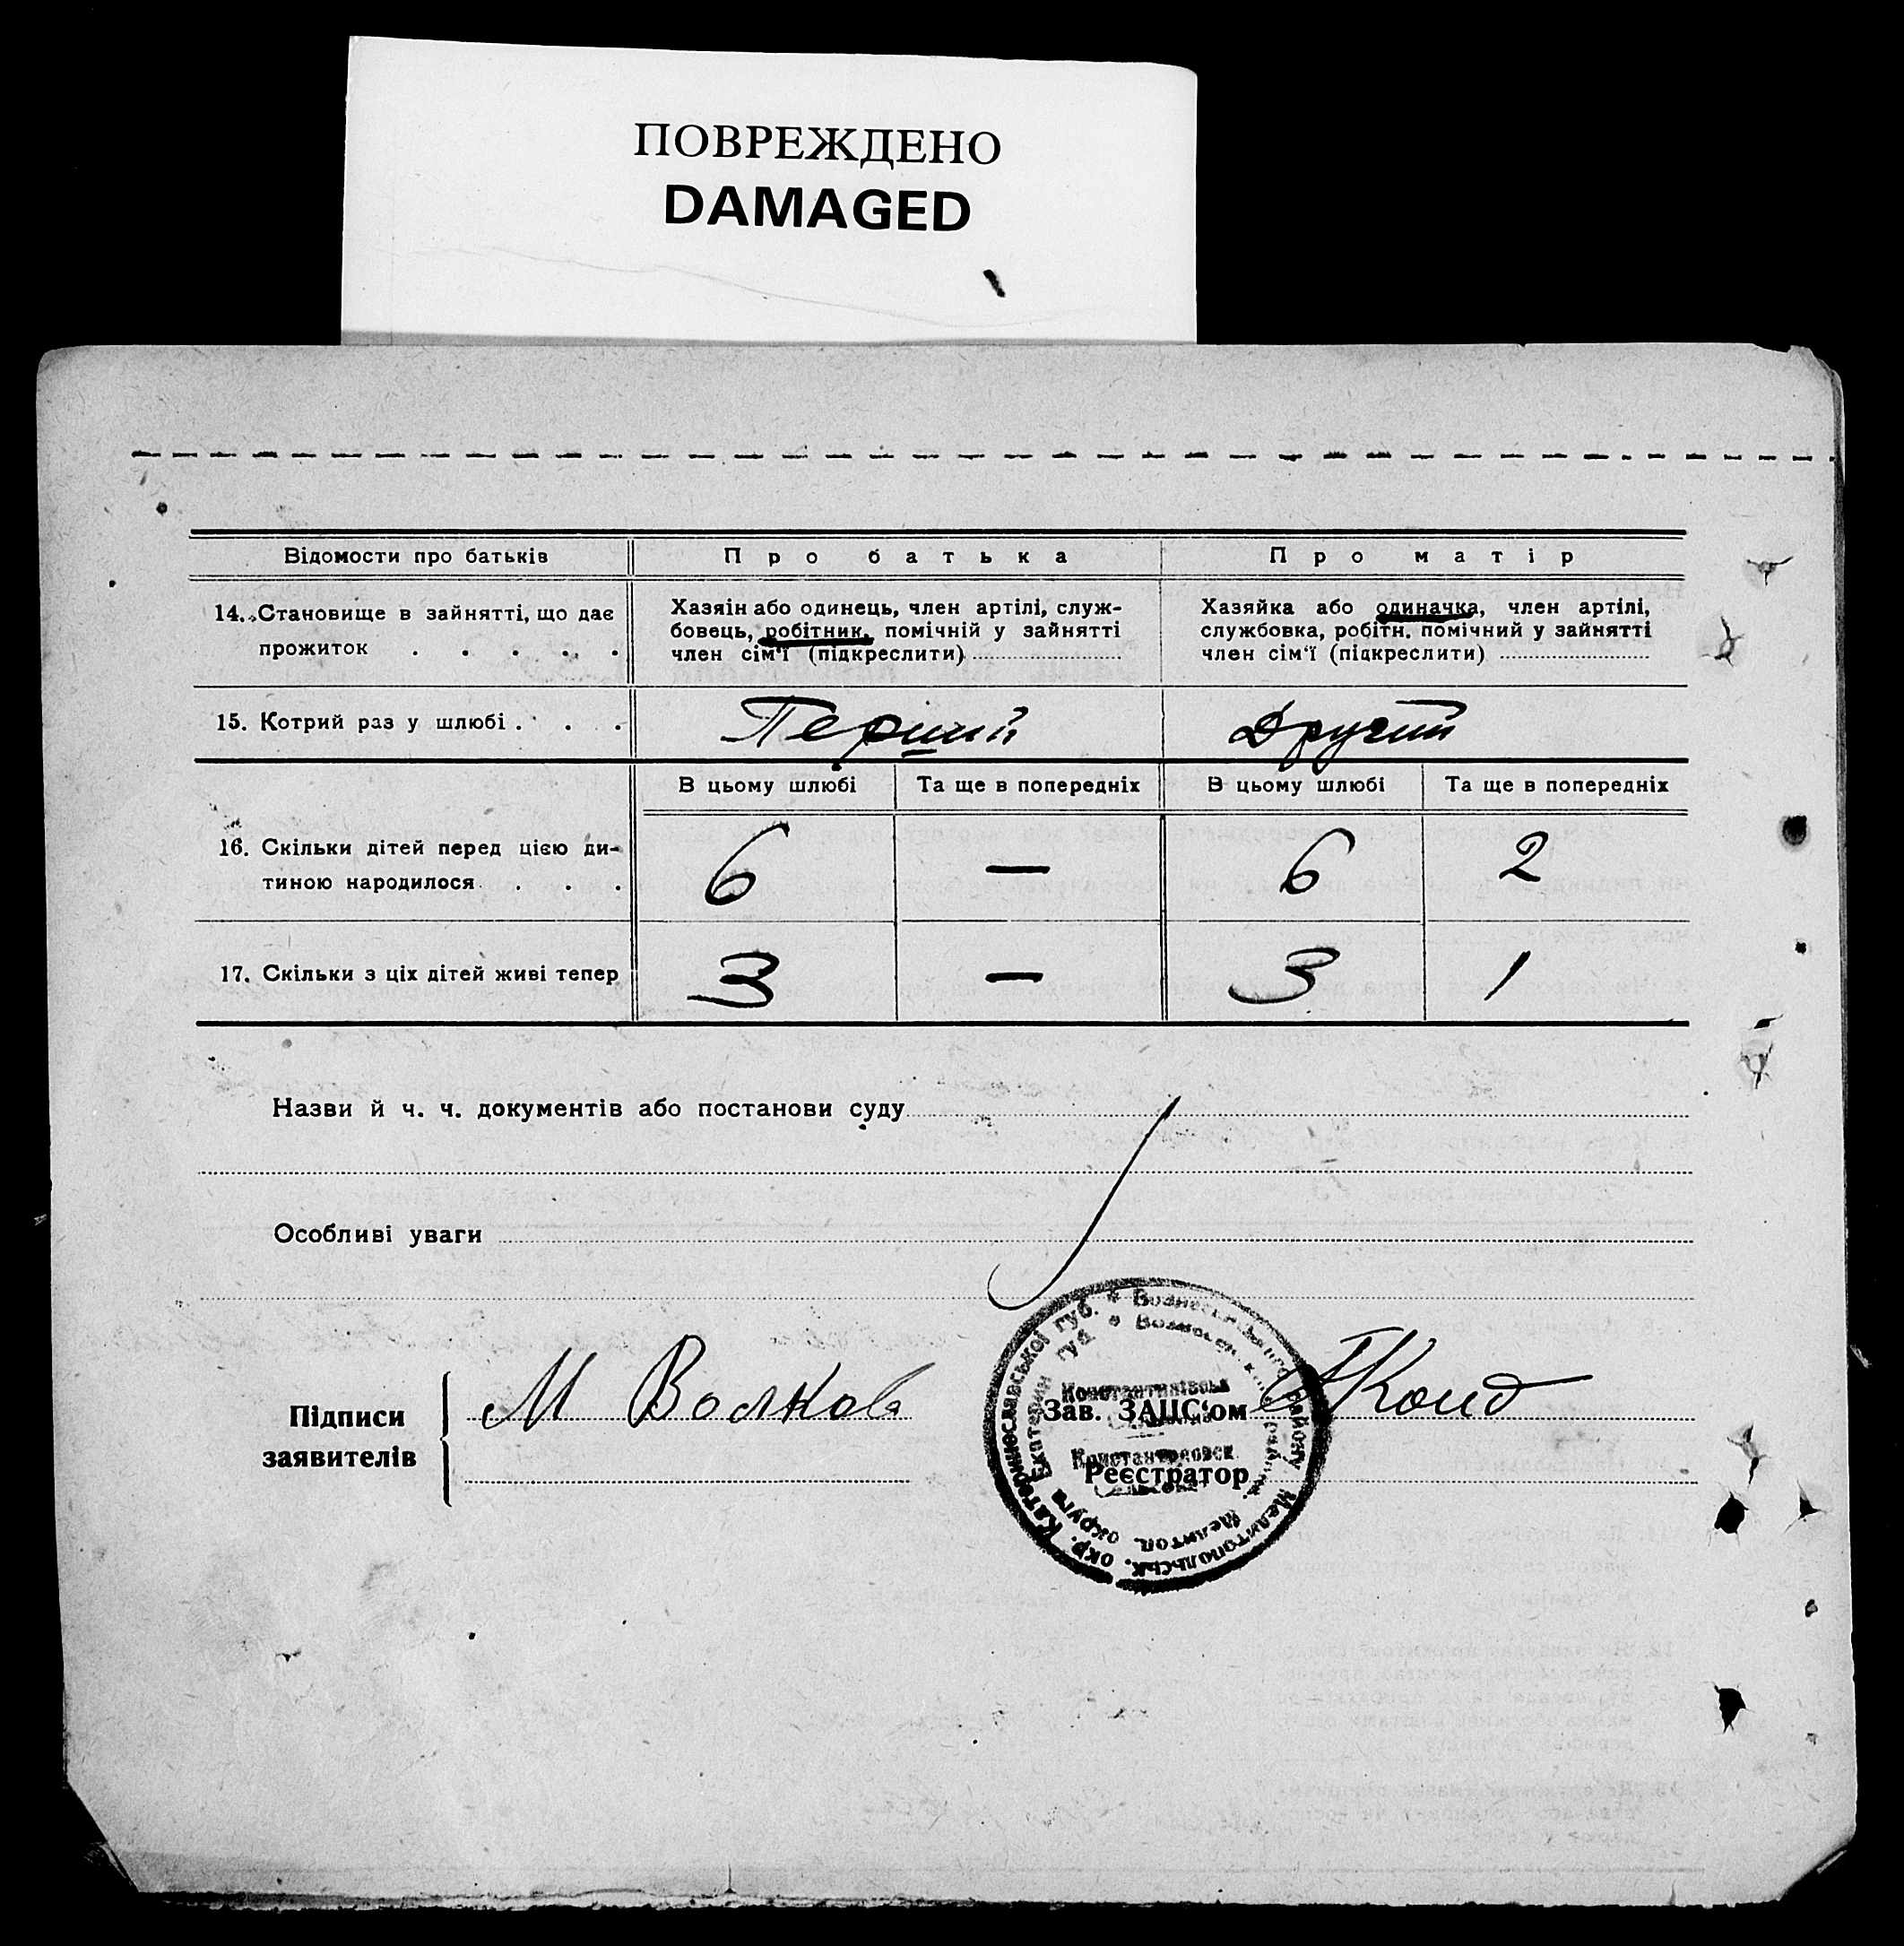 ПОВРЕЖДЕНО
DAMAGED
Відомости про батьків
Про батька
Про матір
14. Становище в зайнятті, що дає
прожиток . . . . .
Хазяін або одинець, член артілі, служ-
бовець, робітник, помічній у зайнятті
член сім'ї (підкреслити)
Хазяйка або одиначка, член артілі,
службовка, робітн. помічний у зайнятті
член сім'ї (підкреслити)
15. Котрий раз у шлюбі . . .
Перший
Другий
В цьому шлюбі
Та ще в попередніх
В цьому шлюбі
Та ще в попередніх
16. Скільки дітей перед цією ди-
тиною народилося . . .
6
—
6
2
17. Скільки з ціх дітей живі тепер
3
—
3
1
Назви й ч. ч. документів або постанови суду
Особливі уваги
Підписи
заявителів
М Волкова
Зав. ЗАЦС'ом
Реєстратор
окр. Катеринославської губ. * Вознесенського району Мелитопольськ.
округа Екатерин губ.
Мелитоп.
Константинівська
Константиновск